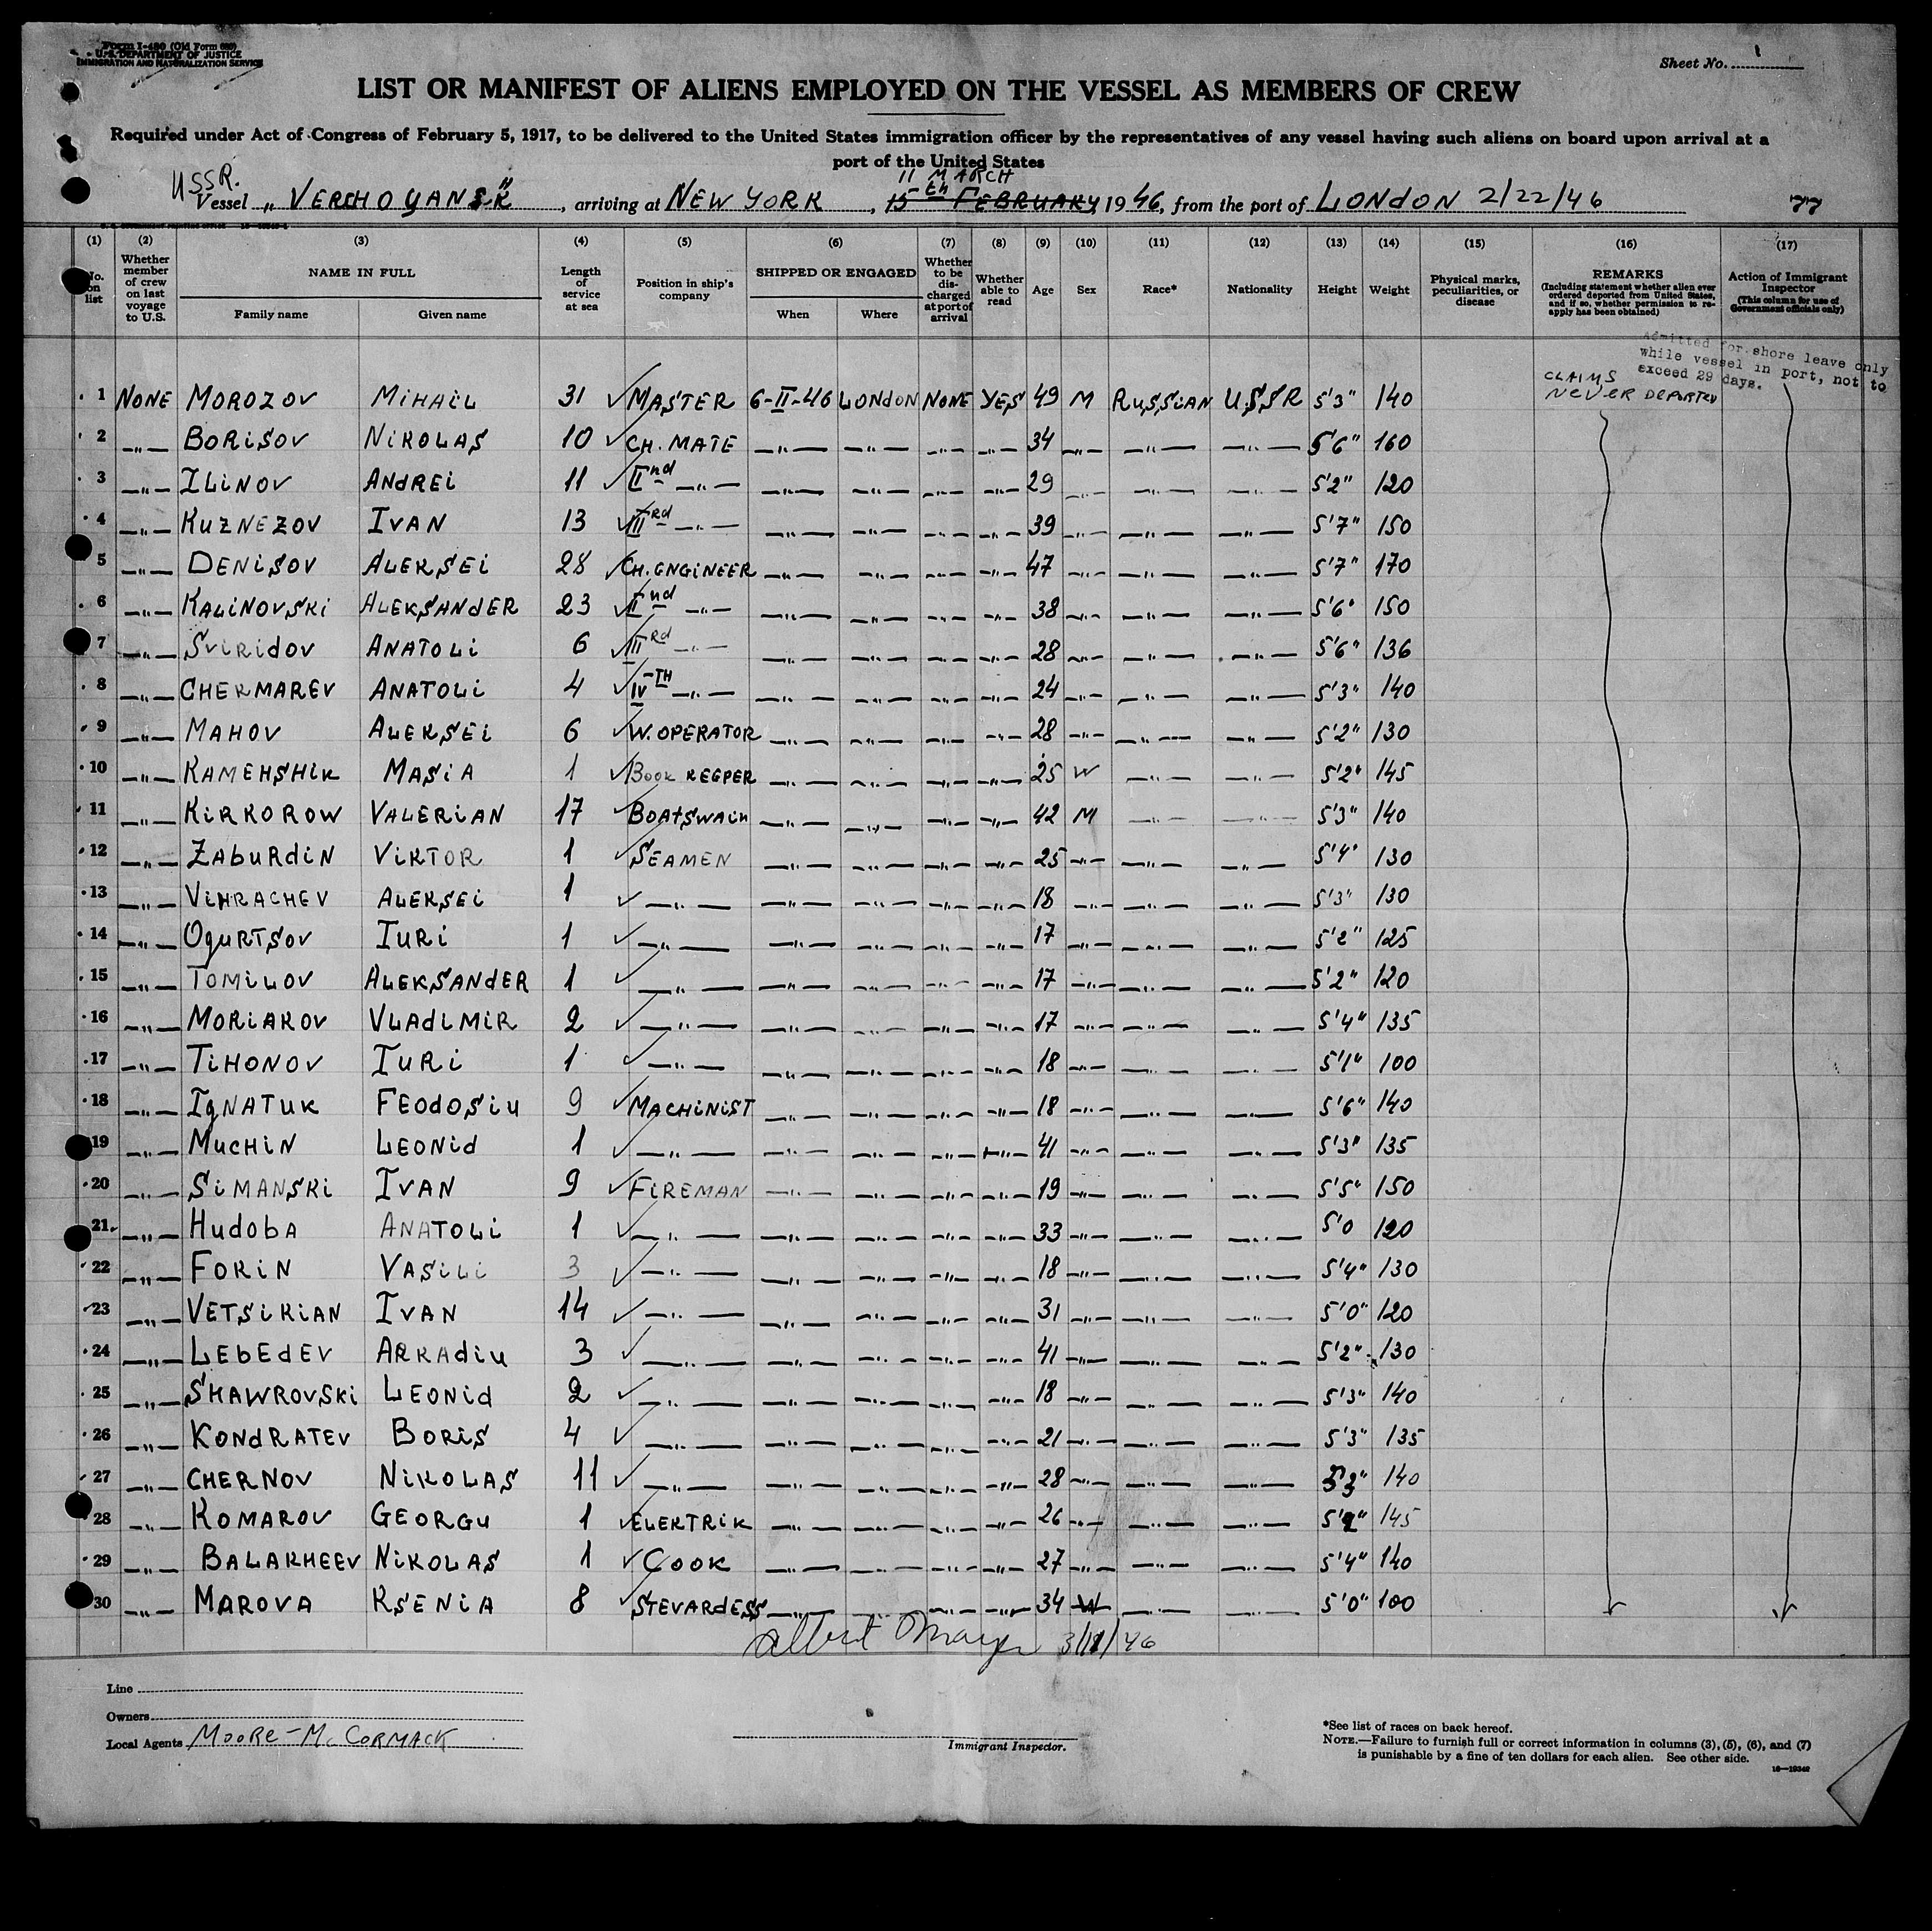 Form I-480 (Old Form 689)
U.S. DEPARTMENT OF JUSTICE
IMMIGRATION AND NATURALIZATION SERVICE
Sheet No. 1
LIST OR MANIFEST OF ALIENS EMPLOYED ON THE VESSEL AS MEMBERS OF CREW
Required under Act of Congress of February 5, 1917, to be delivered to the United States immigration officer by the representatives of any vessel having such aliens on board upon arrival at a
port of the United States
USSR. 11 MARCH
Vessel „ VERCHOYANSK", arriving at NEW YORK, 15th FEBRUARY 1946, from the port of LONDON 2/22/46 77
(1) (2) (3) (4) (5) (6) (7) (8) (9) (10) (11) (12) (13) (14) (15) (16) (17)
No. on list Whether member of crew on last voyage to U.S. NAME IN FULL Family name Given name Length of service at sea Position in ship's company SHIPPED OR ENGAGED When Where Whether to be discharged at port of arrival Whether able to read Age Sex Race* Nationality Height Weight Physical marks, peculiarities, or disease REMARKS (Including statement whether alien ever ordered deported from United States, and if so, whether permission to reapply has been obtained) Action of Immigrant Inspector (This column for use of Government officials only)
Admitted for shore leave only
while vessel in port, not to
exceed 29 days.
CLAIMS
NEVER DEPORTED
1 NONE MOROZOV MIHAIL 31 MASTER 6-II-46 LONDON NONE YES 49 M RUSSIAN U.S.S.R 5'3" 140
2 —"— BORISOV NIKOLAS 10 CH. MATE —"— —"— —"— —"— 34 —"— —"— —"— 5'6" 160
3 —"— ILINOV ANDREI 11 IInd —"— —"— —"— —"— —"— 29 —"— —"— —"— 5'2" 120
4 —"— KUZNEZOV IVAN 13 IIIRd —"— —"— —"— —"— —"— 39 —"— —"— —"— 5'7" 150
5 —"— DENISOV ALEKSEI 28 CH. ENGINEER —"— —"— —"— —"— 47 —"— —"— —"— 5'7" 170
6 —"— KALINOVSKI ALEKSANDER 23 IInd —"— —"— —"— —"— —"— 38 —"— —"— —"— 5'6" 150
7 —"— SVIRIDOV ANATOLI 6 IIIRd —"— —"— —"— —"— —"— 28 —"— —"— —"— 5'6" 136
8 —"— CHEKMAREV ANATOLI 4 IVTH —"— —"— —"— —"— —"— 24 —"— —"— —"— 5'3" 140
9 —"— MAHOV ALEKSEI 6 W. OPERATOR —"— —"— —"— —"— 28 —"— —"— —"— 5'2" 130
10 —"— KAMEHSHIK MASIA 1 BOOK KEEPER —"— —"— —"— —"— 25 W —"— —"— 5'2" 145
11 —"— KIRKOROW VALERIAN 17 BOATSWAIN —"— —"— —"— —"— 42 M —"— —"— 5'3" 140
12 —"— ZABURDIN VIKTOR 1 SEAMEN —"— —"— —"— —"— 25 —"— —"— —"— 5'4" 130
13 —"— VIHRACHEV ALEKSEI 1 —"— —"— —"— —"— —"— 18 —"— —"— —"— 5'3" 130
14 —"— OGURTSOV IURI 1 —"— —"— —"— —"— —"— 17 —"— —"— —"— 5'2" 125
15 —"— TOMILOV ALEKSANDER 1 —"— —"— —"— —"— —"— 17 —"— —"— —"— 5'2" 120
16 —"— MORIAKOV VLADIMIR 2 —"— —"— —"— —"— —"— 17 —"— —"— —"— 5'4" 135
17 —"— TIHONOV IURI 1 —"— —"— —"— —"— —"— 18 —"— —"— —"— 5'1" 100
18 —"— IGNATUK FEODOSIU 9 MACHINIST —"— —"— —"— —"— 18 —"— —"— —"— 5'6" 140
19 —"— MUCHIN LEONID 1 —"— —"— —"— —"— —"— 41 —"— —"— —"— 5'3" 135
20 —"— SIMANSKI IVAN 9 FIREMAN —"— —"— —"— —"— 19 —"— —"— —"— 5'5" 150
21 —"— HUDOBA ANATOLI 1 —"— —"— —"— —"— —"— 33 —"— —"— —"— 5'0 120
22 —"— FOKIN VASILI 3 —"— —"— —"— —"— —"— 18 —"— —"— —"— 5'4" 130
23 —"— VETSIKIAN IVAN 14 —"— —"— —"— —"— —"— 31 —"— —"— —"— 5'0" 120
24 —"— LEBEDEV ARKADIU 3 —"— —"— —"— —"— —"— 41 —"— —"— —"— 5'2" 130
25 —"— SHAWROVSKI LEONID 2 —"— —"— —"— —"— —"— 18 —"— —"— —"— 5'3" 140
26 —"— KONDRATEV BORIS 4 —"— —"— —"— —"— —"— 21 —"— —"— —"— 5'3" 135
27 —"— CHERNOV NIKOLAS 11 —"— —"— —"— —"— —"— 28 —"— —"— —"— 5'3" 140
28 —"— KOMAROV GEORGU 1 ELEKTRIK —"— —"— —"— —"— 26 —"— —"— —"— 5'2" 145
29 —"— BALAKHEEV NIKOLAS 1 COOK —"— —"— —"— —"— 27 —"— —"— —"— 5'4" 140
30 —"— MAROVA KSENIA 8 STEVARDESS —"— —"— —"— —"— 34 W —"— —"— 5'0" 100
Albert 3/11/46
Line
Owners
Local Agents MOORE-McCORMACK
Immigrant Inspector.
*See list of races on back hereof.
NOTE.—Failure to furnish full or correct information in columns (3), (5), (6), and (7)
is punishable by a fine of ten dollars for each alien. See other side.